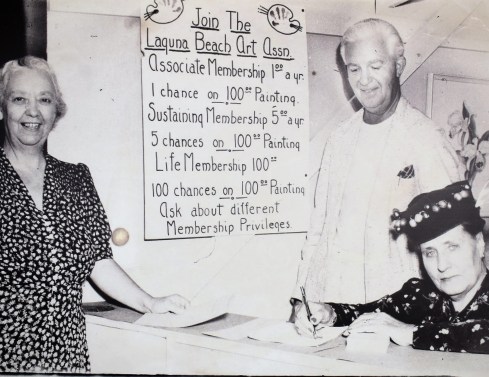 Join The
Laguna Beach Art Assn.
Associate Membership 1.00 a yr.
1 chance on 100.00 Painting.
Sustaining Membership 5.00 a yr.
5 chances on 100.00 Painting
Life Membership 100.00
100 chances on 100.00 Painting
Ask about different
Membership Privileges.